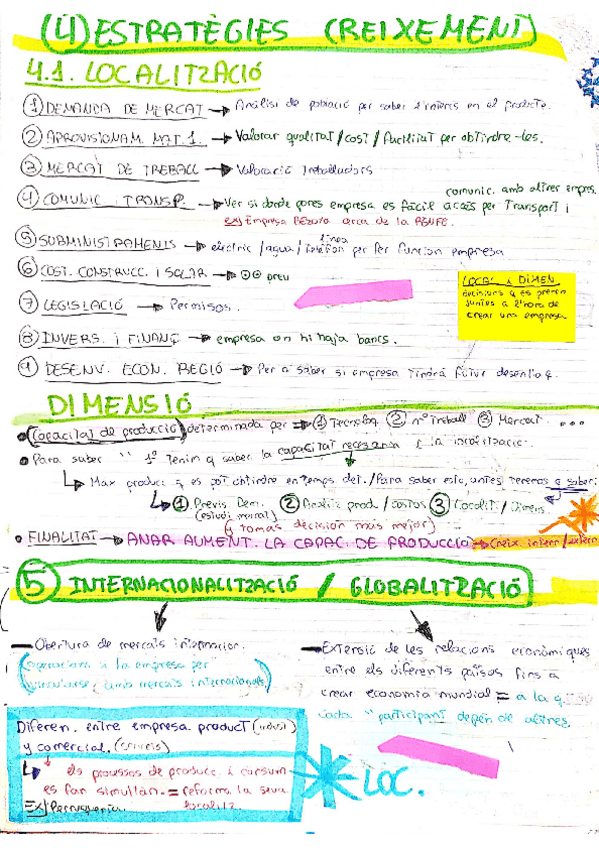 (4) ESTRATÈGIES CREIXEMENT
4.1. LOCALITZACIÓ
① DEMANDA DE MERCAT → Anàlisi de població per saber l'interès en el producte.
② APROVISIONAM. MAT. 1. → Valorar qualitat / cost / facilitat per obtindre-les.
③ MERCAT DE TREBALL → Valoració treballadors
④ COMUNIC. i TRANSP. → Ver si donde pores empresa es fàcil accés per transport i
comunic. amb altres empres.
ex) Empresa cerca de la
⑤ SUBMINISTRAMENTS → electric / aigua / línea telèfon per fer funcion empresa
⑥ COST. CONSTRUCC. I SOLAR → preu
LOCAL. i DIMEN.
decisions q es prenen
juntes a l'hora de
crear una empresa
⑦ LEGISLACIÓ → Permisos.
⑧ INVERS. i FINANÇ → empresa on hi haja bancs.
⑨ DESENV. ECON. REGIÓ → Per a saber si empresa tindrà futur
DIMENSIÓ
(Capacitat de producció) determinada per → ① Tecnolog ② nº treball ③ Mercat ...
Para saber 1º Tenim q saber la capacitat necesaria i la localitzacio.
Max produc q es pot obtindre en temps det. / Para saber esto, antes tenemos q saber:
① Previs. Dem. ② Anàlit. prod / costos ③ Localit / Dimens.
(estudi mercat)
(tomas decisión más mejor)
FINALITAT → ANAR AUMENT. LA CAPAC. DE PRODUCCIÓ → Creix. intern / extern
⑤ INTERNACIONALITZACIÓ / GLOBALITZACIÓ
— Obertura de mercats internacion.
(operacions a la empresa per
vincularse amb mercats internacionals)
Extensió de les relacions econòmiques
entre els diferents països fins a
crear economia mundial = a la q
cada "participant depén de altres.
Diferen. entre empresa product (indust)
y comercial. (serveis)
els processos de producc. i consum
es fan simultàn. = reforma la seua
localitz.
Ex) Perruqueria.
LOC.